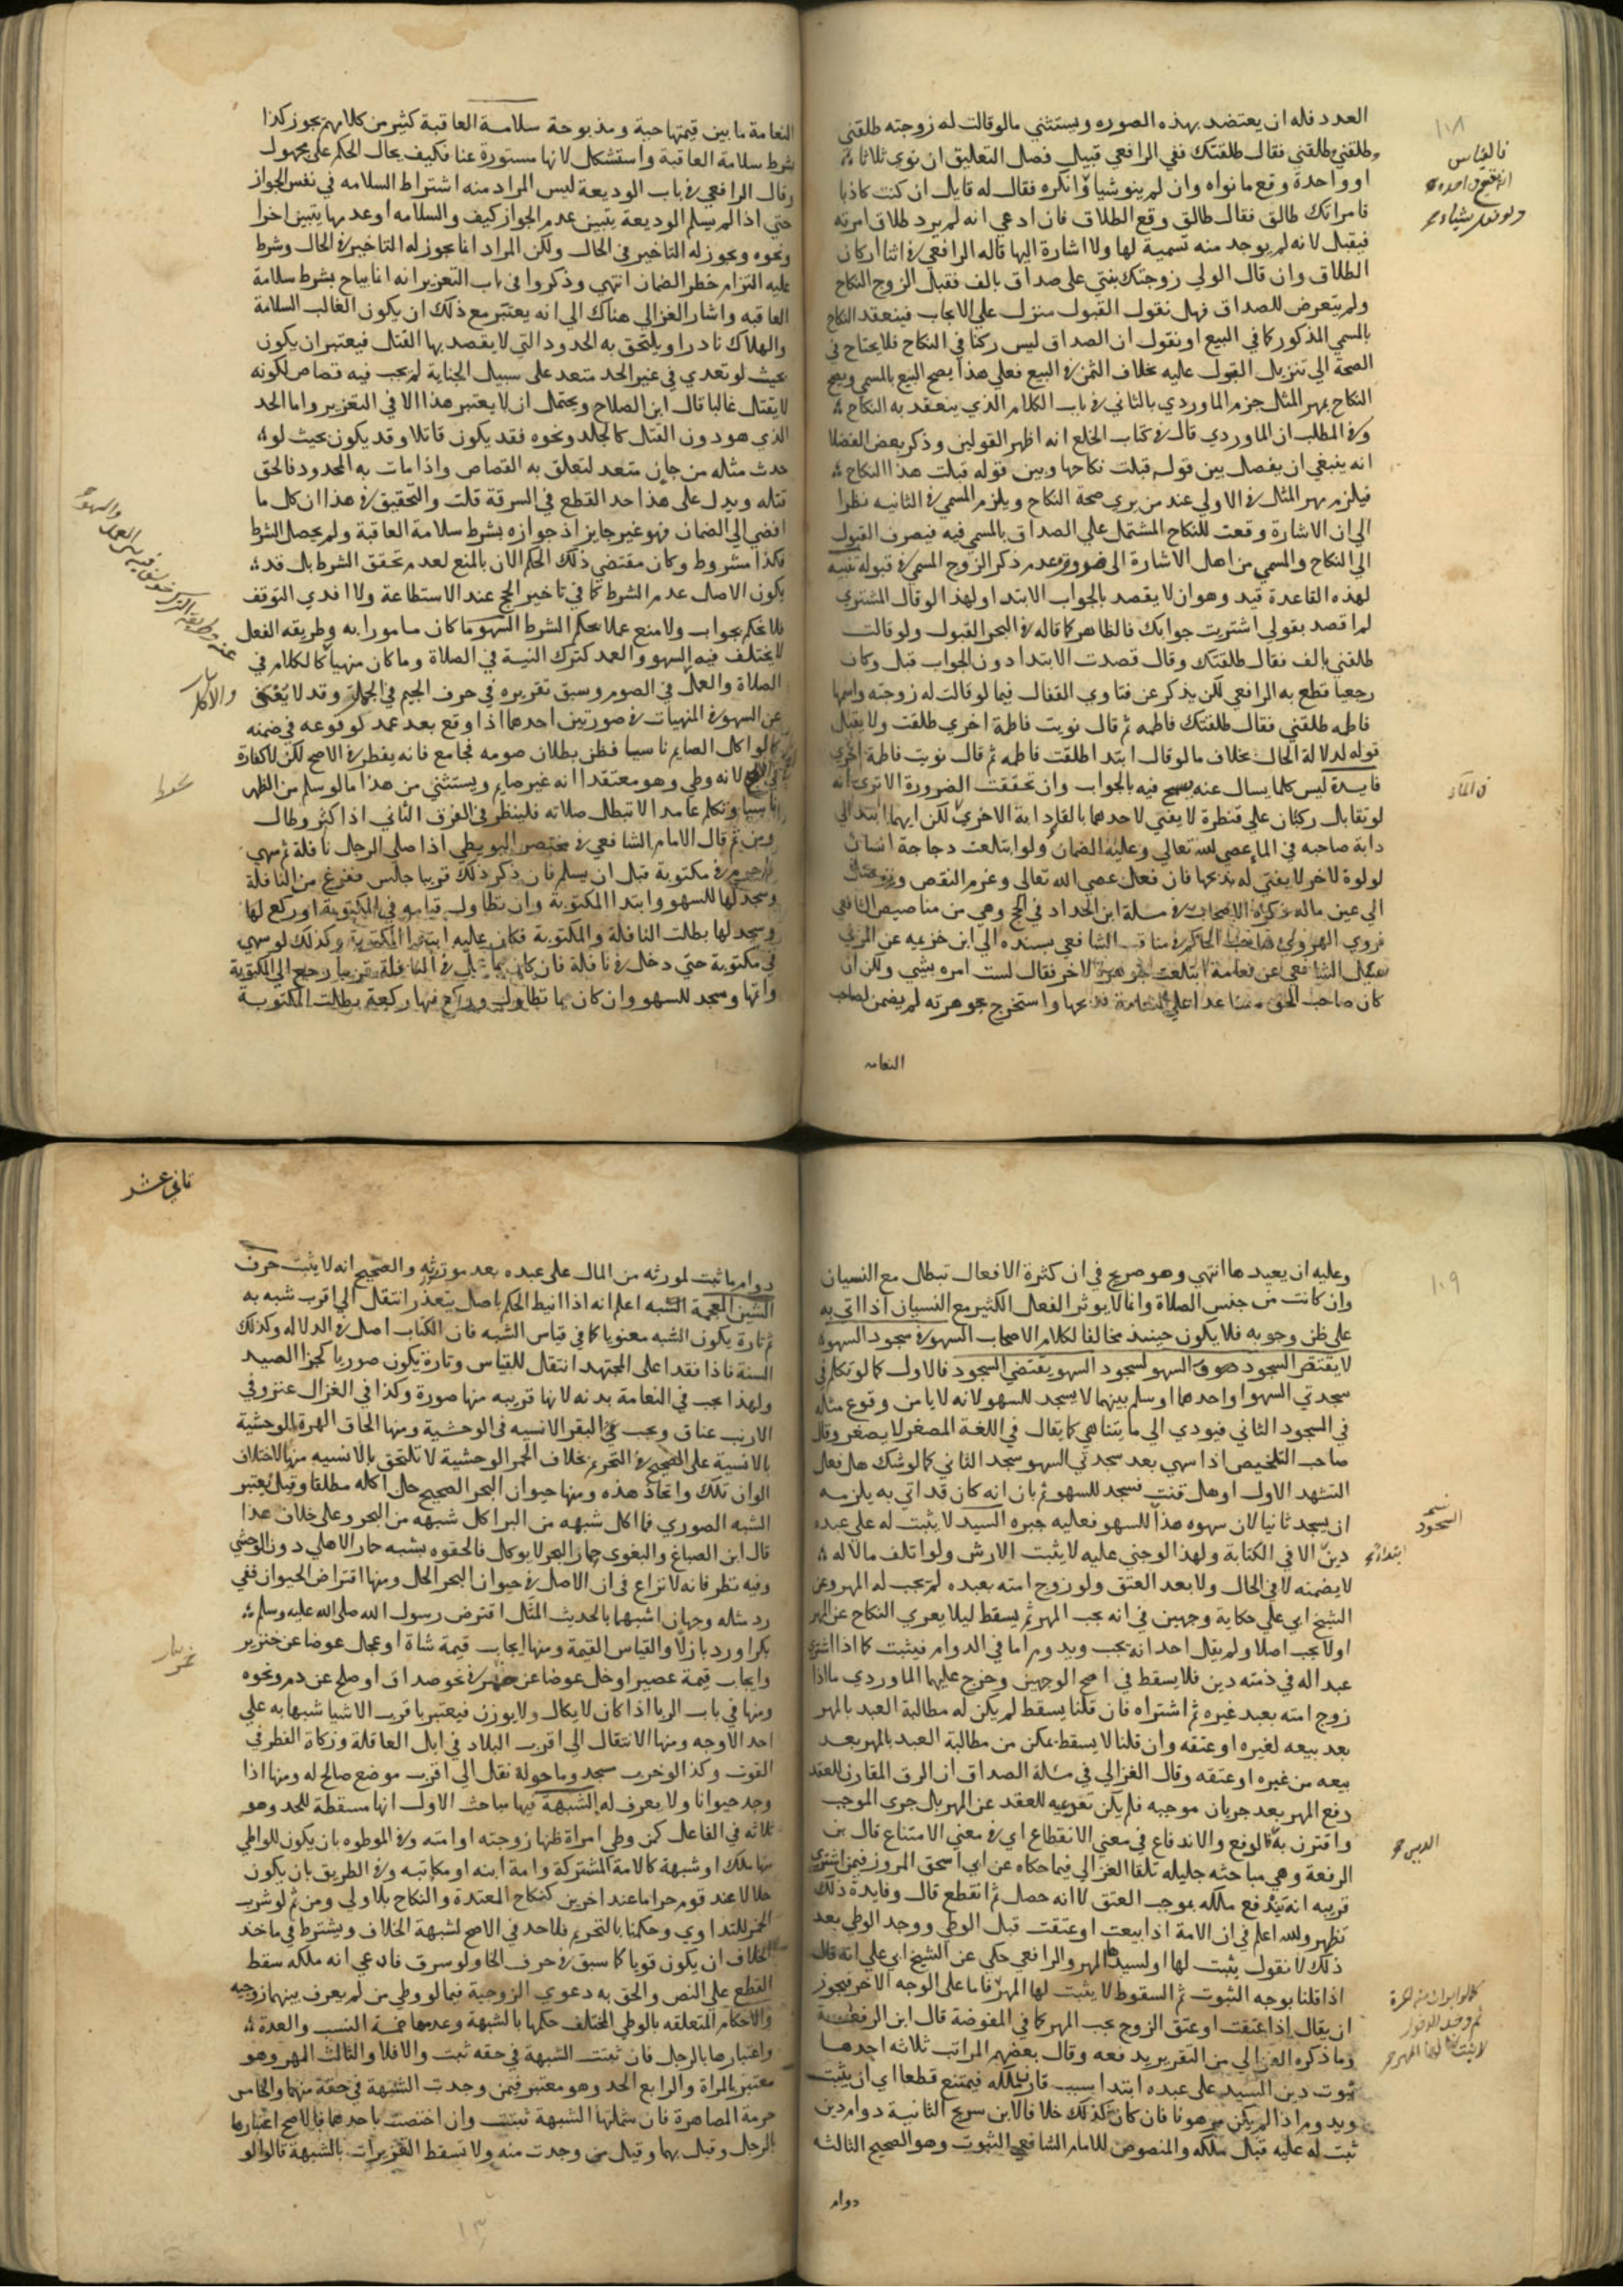 العدد فله ان يعتضد بهذه الصوره ويستثني مالو قالت له زوجته طلقني
وطلقني وطلقني فقال طلقتك ففي الرافعي قبيل فصل التعليق ان نوي ثلاثا
او واحدة وقع ما نواه وان لم ينو شيا وانكره فقال له قايل ان كنت كاذبا
فامراتك طالق فقال طالق وقع الطلاق فان ادعي انه لم يرد طلاق امرته
فيقبل لانه لم يوجد منه تسمية لها ولا اشارة اليها قاله الرافعي في اثنا اركان
الطلاق وان قال الولي زوجتك بنتي على صداق بالف فقبل الزوج النكاح
ولم يتعرض للصداق فهل نقول القبول منزل علي الايجاب فينعقد النكاح
بالمسمي المذكور كما في البيع او نقول ان الصداق ليس ركنا في النكاح فلا يحتاج في
الصحة الي تنزيل القول عليه بخلاف الثمن في البيع فعلي هذا يصح البيع بالمسمي ويصح
النكاح بمهر المثل جزم الماوردي بالثاني في باب الكلام الذي ينعقد به النكاح
وفي المطلب ان الماوردي قال في كتاب الخلع انه اظهر القولين وذكر بعض الفضلا
انه ينبغي ان يفصل بين قوله قبلت نكاحها وبين قوله قبلت هذا النكاح
فيلزم مهر المثل في الاولي عند من يري صحة النكاح ويلزم المسمي في الثانيه نظرا
الي ان الاشارة وقعت للنكاح المشتمل علي الصداق بالمسمي فيه فيصرف القبول
الي النكاح والمسمي من اهل الاشارة الى عدم ذكر الزوج المسمي في قبوله تنبيه
لهذه القاعدة قيد وهو ان لا يقصد بالجواب الابتدا ولهذا لو قال المشتري
لم اقصد بقولي اشتريت جوابك فالظاهر كما قاله في البحر القبول ولو قالت
طلقني بالف فقال طلقتك وقال قصدت الابتدا دون الجواب قبل وكان
رجعيا قطع به الرافعي لكن يذكر عن فتاوي القفال فيما لو قالت له زوجته واسمها
فاطمه طلقني فقال طلقتك فاطمه ثم قال نويت فاطمة اخري طلقت ولا يقبل
قوله لدلالة الحال بخلاف مالو قال ابتدا طلقت فاطمه ثم قال نويت فاطمة اخري
فايدة ليس كلما يسال عنه يسمح فيه بالجواب وان تحققت الضرورة الا تري انه
لو تقابل ركبان علي قنطرة لا يفتي لاحدهما بالقا دابة الاخري لكن ايهما ابتدا الي
دابة صاحبه في الما عصي لله تعالي وعليه الضمان ولو ابتلعت دجاجة انسان
لولوة لاخر لا يفتي له بذبحها فان فعل عصي الله تعالي وغرم النقص
الي عين ماله ذكره الاصحاب في مسلة ابن الحداد في الحج وهي من مناصيص الشافعي
فروي الهروي في مناقب الشافعي بسنده الي ابن خزيمه عن المزني
سئل الشافعي عن نعامة ابتلعت جوهرة لاخر فقال لست امره بشي ولكن ان
كان صاحب الحق عدا علي النعامة فذبحها واستخرج جوهرته لم يضمن لصاحب
النعامه
النعامة ما بين قيمتها حية ومذبوحة سلامة العاقبة كثير من كلامهم يجوز كذا
بشرط سلامة العاقبة واستشكل لانها مستورة عنا فكيف يحال الحكم علي مجهول
وقال الرافعي في باب الوديعة ليس المراد منه اشتراط السلامه في نفس الجواز
حتي اذا لم يسلم الوديعة يتبين عدم الجواز كيف والسلامه او عدمها يتبين اخرا
ونحوه ويجوز له التاخير في الحال ولكن المراد انا نجوز له التاخير في الحال وشرط
عليه التزام خطر الضمان انتهي وذكروا في باب التعزير انه انما يباح بشرط سلامة
العاقبه واشار الغزالي هناك الي انه يعتبر مع ذلك ان يكون الغالب السلامة
والهلاك نادرا ويلتحق به الحدود التي لا يقصد بها القتل فيعتبر ان يكون
بحيث لو تعدي في غير الحد متعد على سبيل الجناية لم يجب فيه قصاص لكونه
لا يقتل غالبا قال ابن الصلاح ويحتمل ان لا يعتبر هذا الا في التعزير واما الحد
الذي هو دون القتل كالجلد ونحوه فقد يكون قاتلا وقد يكون بحيث لو
حدث مثله من جان متعد لتعلق به القصاص واذا مات به المحدود فالحق
قتله ويدل على هذا حد القطع في السرقة قلت والتحقيق في هذا ان كل ما
افضي الي الضمان فهو غير جايز اذ جوازه بشرط سلامة العاقبة ولم يحصل الشرط
فكذا مشروط وكان مقتضي ذلك الحكم الان بالمنع لعدم تحقق الشرط بل قد
يكون الاصل عدم الشرط كما في تاخير الحج عند الاستطاعة ولا اقدي التوقف
فلا تحكم بجواب ولا منع عملا بحكم الشرط السهو ما كان مامورا به وطريقه الفعل
لا يختلف فيه السهو والعمد كترك النية في الصلاة وما كان منهيا كالكلام في
الصلاة والعمل في الصوم وسبق تقريره في حرف الجيم في الجهل وقد لا يعفى
عن السهو في المنهيات في صورتين احدهما اذا وقع بعد عمد كوقوعه في ضمنه
كما لو اكل الصايم ناسيا فظن بطلان صومه فجامع فانه يفطر في الاصح لكن لا كفارة
لانه وطي وهو معتقد انه غير صايم ويستثني من هذا ما لو سلم من الظهر
ناسيا وتكلم عامدا لا تبطل صلاته فلينظر في الفرق الثاني اذا كثر وطال
ومن ثم قال الامام الشافعي في مختصر البويطي اذا صلي الرجل نافلة ثم سهي
في مكتوبة قبل ان يسلم فان ذكر ذلك قريبا جلس ففرغ من النافلة
وسجد لها للسهو وابتدا المكتوبة وان تطاول قيامه في المكتوبة او ركع لها
وسجد لها بطلت النافلة والمكتوبة فكان عليه ابتدا المكتوبة وكذلك لو سهي
في مكتوبة حتي دخل في نافلة فان كان ما عمل في النافلة قريبا رجع الي المكتوبة
واتها وسجد للسهو وان كان ما تطاول وركع فيها ركعة بطلت المكتوبة
وعليه ان يعيدها انتهي وهو صريح في ان كثرة الافعال تبطل مع النسيان
وان كانت من جنس الصلاة وانما لا يوثر الفعل الكثير مع النسيان اذا اتي به
علي ظن وجوبه فلا يكون حينيذ مخالفا لكلام الاصحاب السهو في سجود السهو
لا يقتضي السجود السهو لسجود السهو يقتضي السجود فالاول كما لو تكلم في
سجدتي السهو او احدهما او سلم بينهما لا يسجد للسهو لانه لا يامن وقوع مثله
في السجود الثاني فيودي الي ما يتناهي كما يقال في اللغة المصغر لا يصغر وقال
صاحب التلخيص اذا سهي بعد سجدتي السهو سجد الثاني كما لو شك هل فعل
التشهد الاول او هل قنت فسجد للسهو ثم بان انه كان قد اتي به يلزمه
ان يسجد ثانيا لان سهوه هذا للسهو فعليه جبره السيد لا يثبت له علي عبده
دين الا في الكتابة ولهذا لو جني عليه لا يثبت الارش ولو اتلف مالا له
لا يضمنه لا في الحال ولا بعد العتق ولو زوج امته بعبده لم يجب له المهر وعن
الشيخ ابي علي حكاية وجهين في انه يجب المهر ثم يسقط ليلا يعري النكاح عن المهر
او لا يجب اصلا ولم يقل احد انه يجب ويدوم اما في الدوام فيثبت كما اذا اشتري
عبدا له في ذمته دين فلا يسقط في اصح الوجهين وخرج عليهما الماوردي ما اذا
زوج امته بعبد غيره ثم اشتراه فان قلنا يسقط لم يكن له مطالبة العبد بالمهر
بعد بيعه لغيره او عتقه وان قلنا لا يسقط تمكن من مطالبة العبد بالمهر بعد
بيعه من غيره او عتقه وقال الغزالي في مسلة الصداق ان الرق المقارن للعقد
دفع المهر بعد جريان موجبه فلم يكن تعرية للعقد عن المهر بل جري الموجب
واقترن به كالوقع والاندفاع في معني الانقطاع اي في معني الامتناع قال بن
الرفعة وهي مباحثه جليله تلقاها الغزالي فيما حكاه عن ابي اسحق المروزي فيمن اشتري
قريبه انه يندفع ملكه بموجب العتق لا انه حصل ثم انقطع قال وفايدة ذلك
تظهر ولله اعلم في ان الامة اذا بيعت او عتقت قبل الوطي ووجد الوطي بعد
ذلك لا نقول يثبت لها او لسيدها المهر والرافعي حكي عن الشيخ ابي علي انه قال
اذا قلنا بوجه الثبوت ثم السقوط لا يثبت لها المهر فاما علي الوجه الاخر فيجوز
ان يقال اذا عتقت او عتق الزوج يجب المهر كما في المفوضة قال ابن الرفعة
وما ذكره الغزالي من التقرير يدفعه وقال بعضهم المراتب ثلاثه احدها
ثبوت دين السيد علي عبده ابتدا بسبب قارن ملكه فيمتنع قطعا اي ان يثبت
ويدوم اذا لم يكن مرهونا فان كان كذلك خلافا لابن سريج الثانية دوام دين
ثبت له عليه قبل ملكه والمنصوص للامام الشافعي الثبوت وهو الصحيح الثالثه
دوام
ثاني عشر
دوام ما ثبت لمورثه من المال على عبده بعد موته والصحيح انه لا يثبت حرف
الشين المعجمة الشبه اعلم انه اذا انيط الحكم باصل يتعذر انتقل الي اقرب شبه به
ثم تارة يكون الشبه معنويا كما في قياس الشبه فان الكتاب اصل في الدلاله وكذلك
السنة فاذا فقدا على المجتهد انتقل للقياس وتارة يكون صوريا كجزا الصيد
ولهذا يجب في النعامة بدنه لانها قريبه منها صورة وكذا في الغزال عنز وفي
الارنب عناق ويجب في البقر الانسيه في الوحشية ومنها الحاق الهرة الوحشية
بالانسية على الصحيح في التحريم بخلاف الحمر الوحشية لا تلتحق بالانسيه منها لاختلاف
الوان تلك واتحاد هذه ومنها حيوان البحر الصحيح حل اكله مطلقا وقيل يعتبر
الشبه الصوري فما اكل شبهه من البر اكل شبهه من البحر وعلى خلاف هذا
قال ابن الصباغ والبغوي حمار البحر لا يوكل فالحقوه بشبه حمار الاهلي دون الوحشي
وفيه نظر فانه لا نزاع في ان الاصل في حيوان البحر الحل ومنها اقتراض الحيوان ففي
رد مثله وجهان اشبهما بالحديث المثل اقترض رسول الله صلى الله عليه وسلم
بكرا ورد بازلا والقياس القيمة ومنها ايجاب قيمة شاة او عجل عوضا عن خنزير
وايجاب قيمة عصير او خل عوضا عن خمر في نحو صداق او صلح عن دم ونحوه
ومنها في باب الربا اذا كان لا يكال ولا يوزن فيعتبر باقرب الاشيا شبها به علي
احد الاوجه ومنها الانتقال الي اقرب البلاد في ابل العاقلة وزكاة الفطر في
القوت وكذا لو خرب مسجد وما حوله نقل الي اقرب موضع صالح له ومنها اذا
وجد حيوانا ولا يعرف له الشبهة فيها مباحث الاول انها مسقطة للحد وهو
ثلاثه في الفاعل كمن وطي امراة ظنها زوجته او امته وفي الموطوه بان يكون للواطي
منها ملك او شبهة كالامة المشتركة وامة ابنه او مكاتبه وفي الطريق بان يكون
حلالا عند قوم حراما عند اخرين كنكاح المعتدة والنكاح بلا ولي ومن ثم لو شرب
الخمر للتداوي وحكمنا بالتحريم فلا حد في الاصح لشبهة الخلاف ويشترط في ماخذ
الخلاف ان يكون قويا كما سبق في حرف الخا ولو سرق فادعي انه ملكه سقط
القطع علي النص والحق به دعوي الزوجية فيما لو وطي من لم يعرف بينهما زوجيه
والاحكام المتعلقه بالوطي المختلف حكمها بالشبهة وعدمها خمسة النسب والعدة
واعتبارها بالرجل فان ثبتت الشبهة في حقه ثبت والا فلا والثالث المهر وهو
معتبر بالمراة والرابع الحد وهو معتبر فيمن وجدت الشبهة في حقه منهما والخامس
حرمة المصاهرة فان شملتها الشبهة ثبتت وان اختصت باحدهما فالاصح اعتبارها
بالرجل وقيل بهما وقيل من وجدت منه ولا تسقط التعزيرات بالشبهة قالوا لو